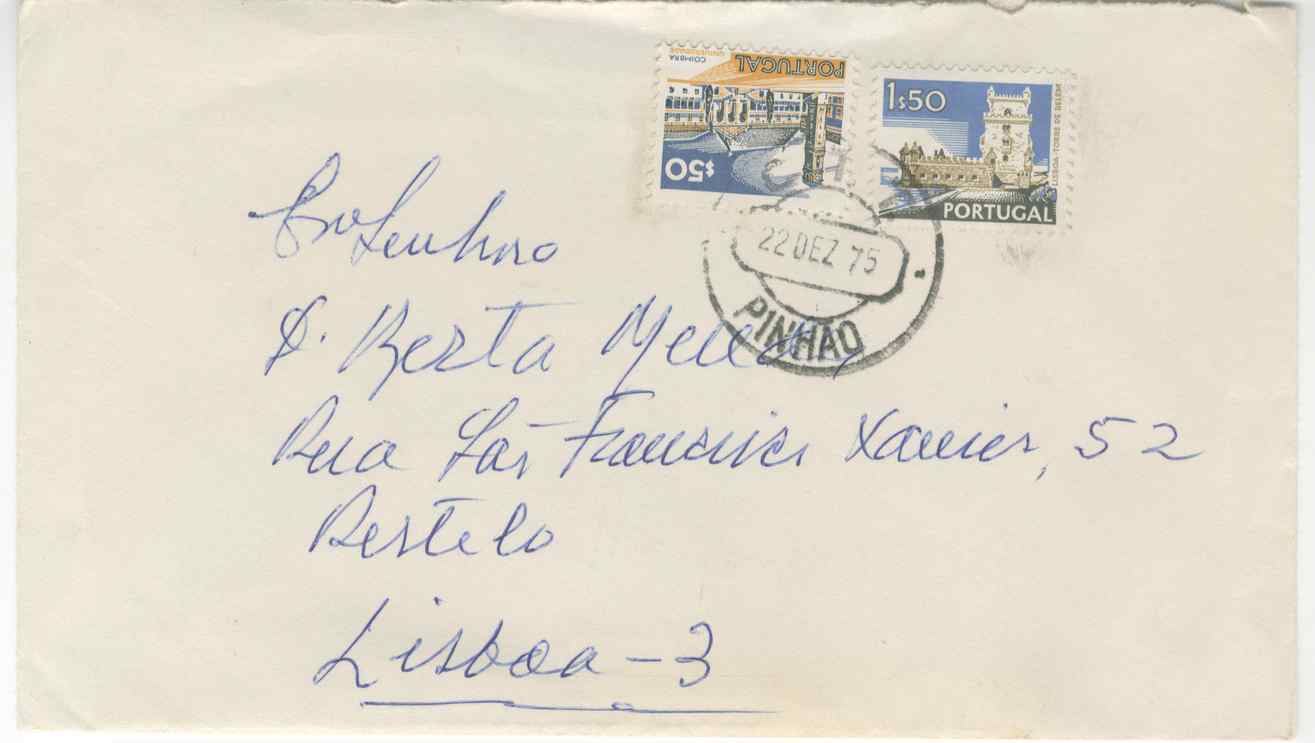 COIMBRA
UNIVERSIDADE
PORTUGAL
$50
1$50
LISBOA-TORRE DE BELEM
PORTUGAL
CTT
22 DEZ 75
PINHÃO
D. Berta
Rua São Francisco Xavier, 52
Restelo
Lisboa - 3